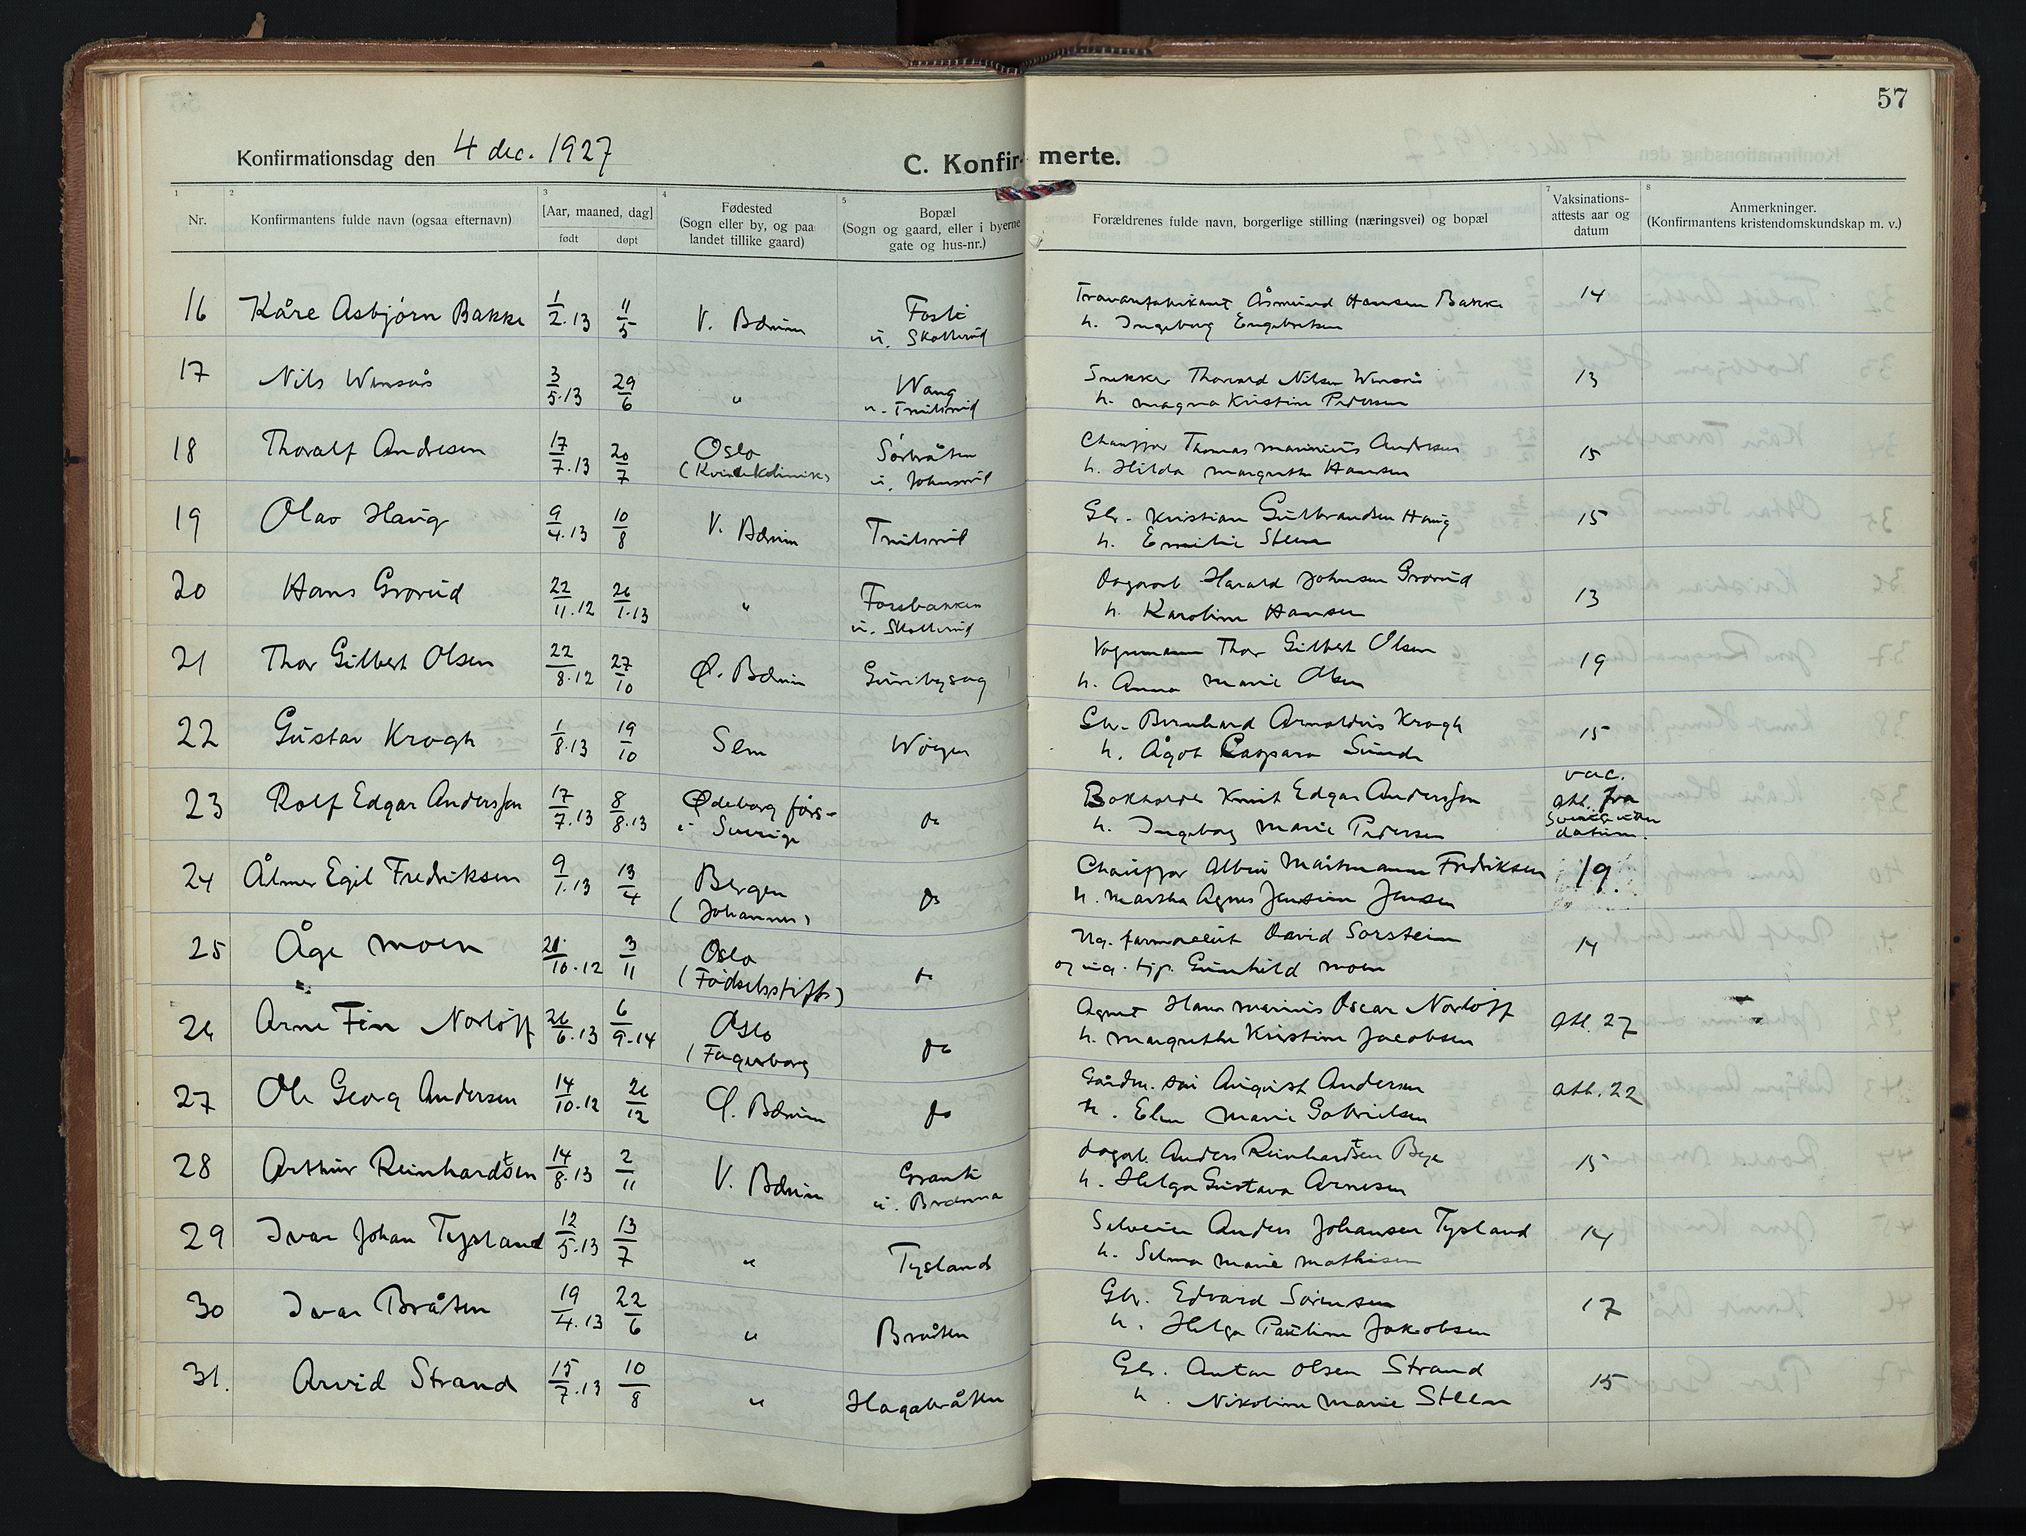 57
Konfirmationsdag den 4 dec. 1927
C. Konfir- merte.
1 2 3 4 5 7 8
Nr.
Konfirmantens fulde navn (ogsaa efternavn)
[Aar, maaned, dag]
født
døpt
Fødested
(Sogn eller by, og paa
landet tillike gaard)
Bopæl
(Sogn og gaard, eller i byerne
gate og hus-nr.)
Forældrenes fulde navn, borgerlige stilling (næringsvei) og bopæl
Vaksinations-
attests aar og
datum
Anmerkninger.
(Konfirmantens kristendomskundskap m. v.)
16 Kåre Asbjørn Bakke 1/2.13 11/5 V. Bærum
Åsmund Hansen Bakke 14
h. Ingeborg Engebretsen
17 Nils Winsnes 3/5.13 29/6 " Wang
Snekker Thorvald Nilsen Winsnes 13
h. Magna Kristine Pedersen
18 Thoralf Andresen 17/7.13 20/7 Oslo Sørbråten
(Kvindeklinik)
Chauffør Thomas Marinius Andresen 15
h. Hilda Margrethe Hansen
19 Olav Haug 9/4.13 10/8 V. Bærum
Gbr. Kristian Gulbrandsen Haug 15
h. Emilie Steen
20 Hans Grorud 22/11.12 26/1.13 " Fossbakken
Harald Johnsen Grorud 13
h. Karoline Hansen
21 Thor Gilbert Olsen 22/8.12 27/10 Ø. Bærum Guribysag
Vognmann Thor Gilbert Olsen 19
h. Anna Marie Olsen
22 Gustav Krogh 1/8.13 19/10 Sem Wøyen
Gbr. Bernhard Arnoldus Krogh 15
h. Ågot Caspara Sunde
23 Rolf Edgar Andersson 17/7.13 8/8.13 Ødeborg förs- do
i Sverige
Bokholder Knut Edgar Andersson
h. Ingeborg Marie Pedersen
vac.
att. fra
Sverige uten
datum.
24 Ålmer Egil Fredriksen 9/1.13 13/4 Bergen do
(Johannes)
Chauffør Albin Fredriksen 19.
h. Martha Agnes Jensine Jensen
25 Åge Moen 20/10.12 3/11 Oslo do
(Fødselsstift)
Ug. farmaceut David Sorstein 14
og ug. tjp. Gunhild Moen
26 Arne Fin Norløff 26/6.13 6/9.14 Oslo do
(Fagerborg
Agent Hans Marius Oscar Norløff att. 27
h. Margrethe Kristine Jacobsen
27 Ole Georg Andersen 14/10.12 26/12 Ø. Bærum do
August Andersen att. 22
h. Elen Marie Gabrielsen
28 Arthur Reinhardtsen 14/8.13 2/11 V. Bærum
Anders Reinhardtsen Bye 15
h. Helga Gustava Arnesen
29 Ivar Johan Tysland 12/5.13 13/7 " Tyslands
Anders Johansen Tysland 14
h. Selma Marie Mathisen
30 Ivar Bråten 19/4.13 22/6 " Bråten
Gbr. Edvard Sørensen 17
h. Helga Pauline Jakobsen
31. Arvid Strand 15/7.13 10/8 " Hagabråten
Gbr. Anton Olsen Strand 15
h. Nikoline Marie Steen